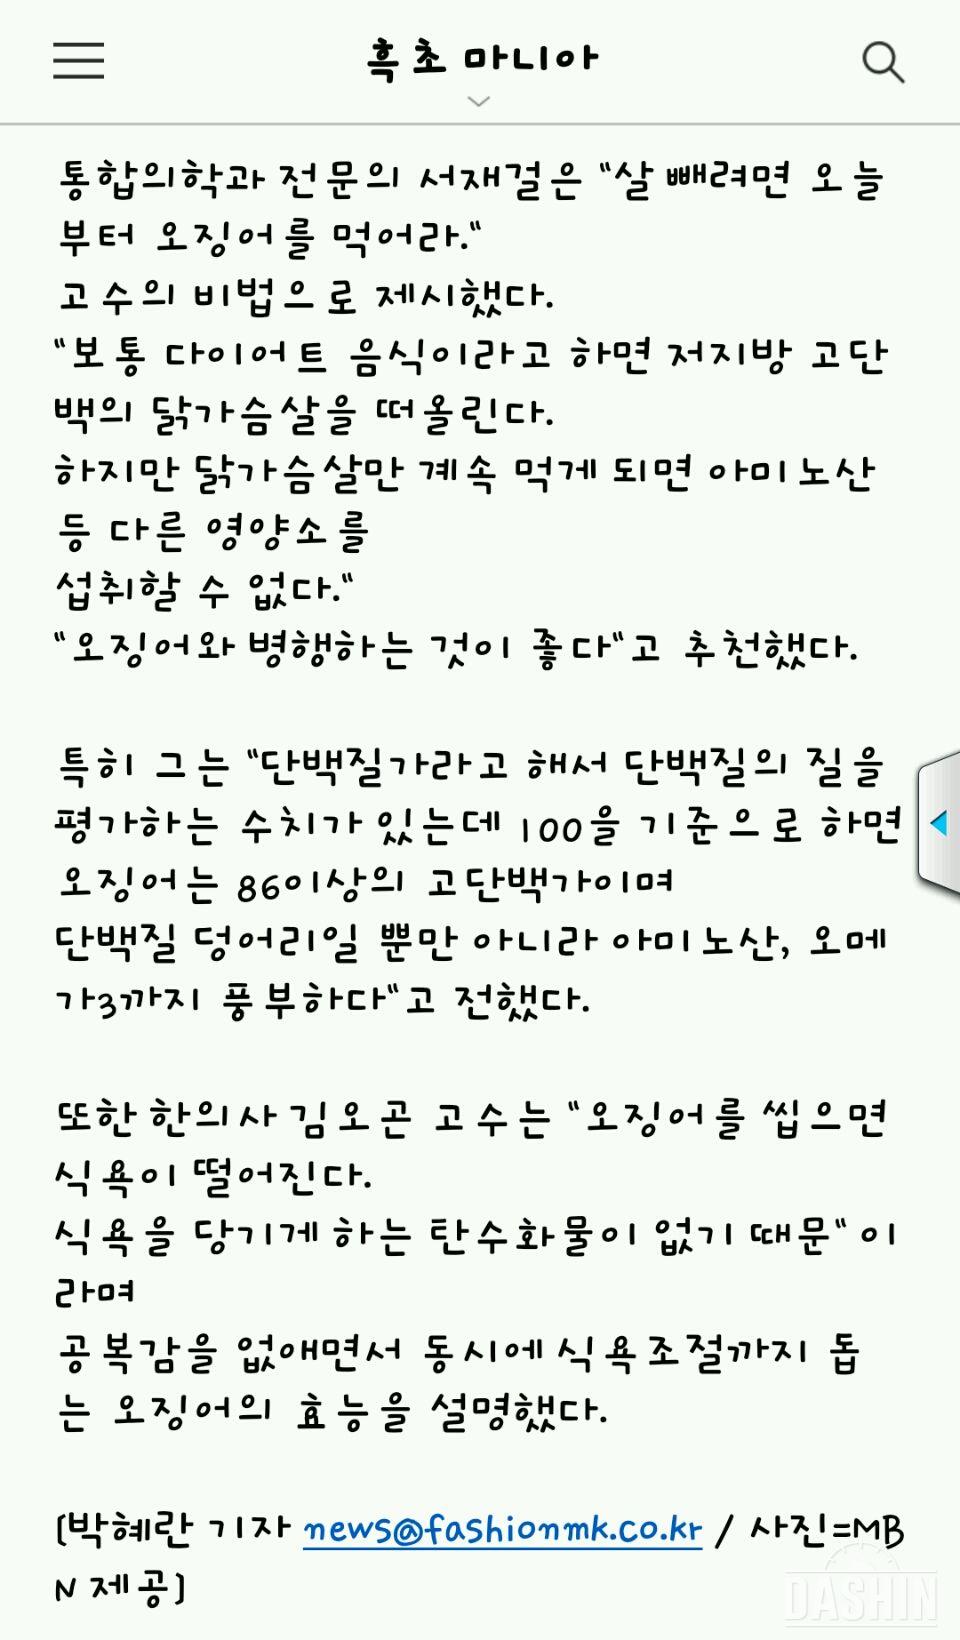 흑초 마니아
통합의학과 전문의 서재걸은 "살 빼려면 오늘
부터 오징어를 먹어라."
고수의 비법으로 제시했다.
"보통 다이어트 음식이라고 하면 저지방 고단
백의 닭가슴살을 떠올린다.
하지만 닭가슴살만 계속 먹게 되면 아미노산
등 다른 영양소를
섭취할 수 없다."
"오징어와 병행하는 것이 좋다"고 추천했다.
특히 그는 "단백질가라고 해서 단백질의 질을
평가하는 수치가 있는데 100을 기준으로 하면
오징어는 86이상의 고단백가이며
단백질 덩어리일 뿐만 아니라 아미노산, 오메
가3까지 풍부하다"고 전했다.
또한 한의사 김오곤 고수는 "오징어를 씹으면
식욕이 떨어진다.
식욕을 당기게 하는 탄수화물이 없기 때문" 이
라며
공복감을 없애면서 동시에 식욕조절까지 돕
는 오징어의 효능을 설명했다.
[박혜란 기자 news@fashionmk.co.kr / 사진=MB
N 제공]
DASHIN